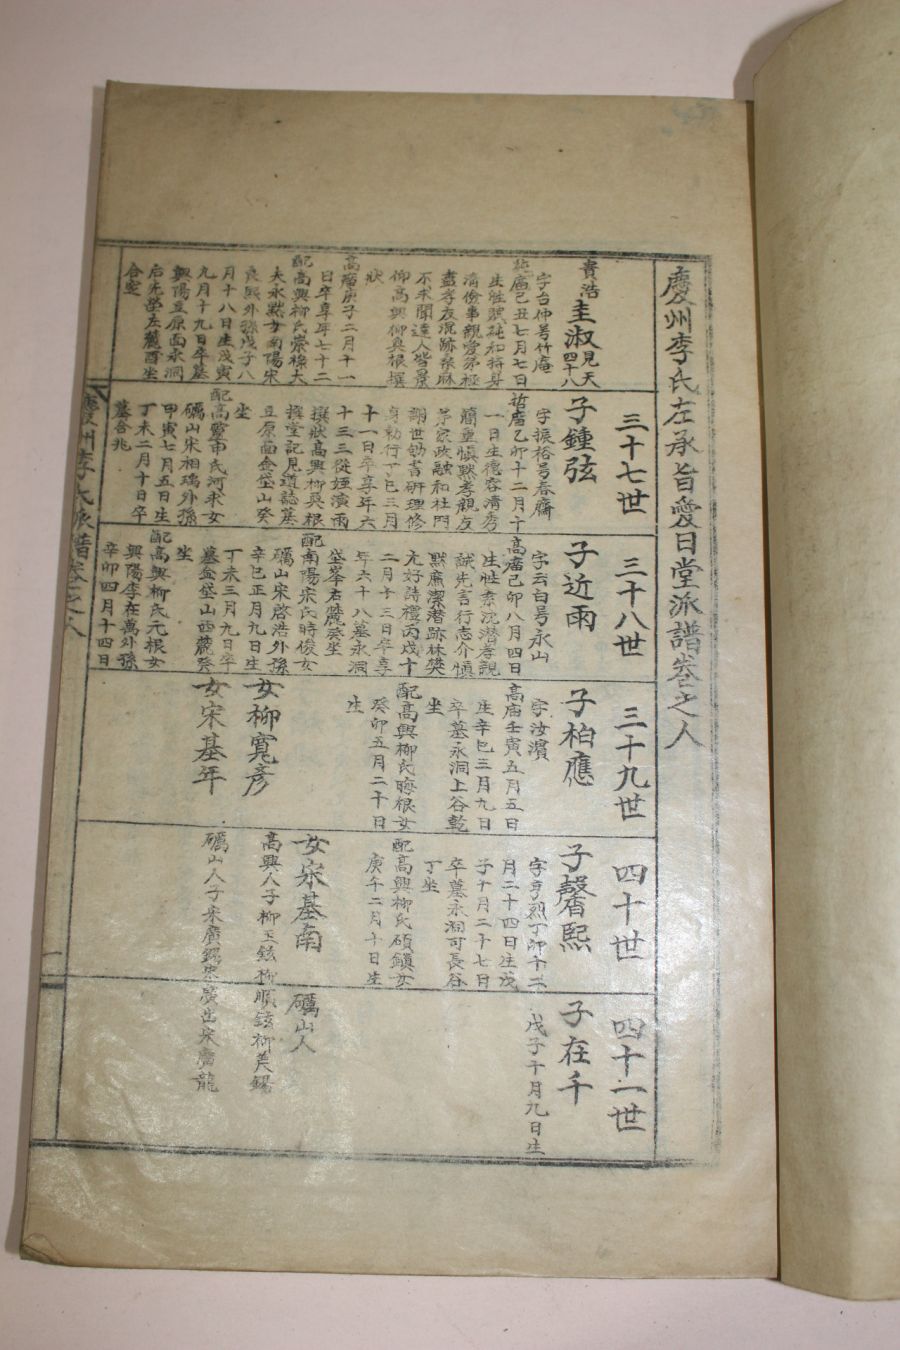 慶州李氏左承旨愛日堂派譜卷之人
三十七世
三十八世
三十九世
四十世
四十一世
貴浩圭淑見天四十八
字台仲号竹庵
純廟己丑七月七日
生性貌純和持身
清儉事親愛弟極
盡孝友混跡桑麻
不求聞達人皆景
仰高興柳奭根撰
狀
高廟庚子二月十一
日卒享年七十二
配高興柳氏崇祿大
夫永默女南陽宋
良熙外孫戊子八
月十八日生戊寅
九月十九日卒墓
興陽豆原面永洞
后先塋左麓酉坐
合窆
子鍾弦
字振格号春齋
哲廟乙卯十二月十
一日生德容清秀
簡重愼默孝親友
弟家政融和杜門
謝世劬書研理修
身勅行丁巳三月
十一日卒享年六
十三三從姪演雨
撰狀高興柳奭根
撰堂記見遺誌墓
豆原面金垈山癸
坐
配高靈申氏河求女
礪山宋相瑀外孫
甲寅七月五日生
丁未二月十日卒
墓合兆
子近雨
字云白号永山
高廟己卯八月四日
生性素沈潜孝親
誠先言行志介愼
默廉潔潜跡林樊
尤好詩禮丙戌十
二月十三日卒享
年六十八墓永洞
垈峯右麓癸坐
配南陽宋氏時俊女
礪山宋啓浩外孫
辛巳正月九日生
丁未三月九日卒
墓金垈山西麓癸
坐
配高興柳氏元根女
興陽李在萬外孫
辛卯四月十四日
子柏應
字汝濱
高廟壬寅五月五日
生辛巳三月九日
卒墓永洞上谷乾
坐
配高興柳氏晦根女
癸卯五月二十日
生
女柳寬彦
女宋基年
子馨熙
字亨烈丁卯十二
月二十四日生戊
子十月二十七日
卒墓永洞可長谷
丁坐
配高興柳氏碩鎮女
庚午二月十日生
女宋基南
高興人子柳玉鉉柳順鉉柳美錫
礪山人子宋廣錫宋廣出宋廣龍
子在千
戊子十月九日生
礪山人
慶州李氏派譜卷之人
一